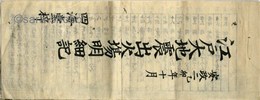 安政二乙卯年十月
江戸大地震出火場明細記
四海堂梓